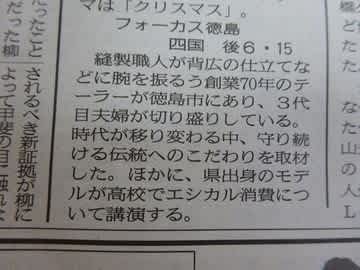 マは「クリスマス」。
フォーカス徳島
四国　後6・15
縫製職人が背広の仕立てな
どに腕を振るう創業70年のテ
ーラーが徳島市にあり、3代
目夫婦が切り盛りしている。
時代が移り変わる中、守り続
ける伝統へのこだわりを取材
した。ほかに、県出身のモデ
ルが高校でエシカル消費につ
いて講演する。
だったこと
だった柳
されるべき新証拠が柳に
よって甲斐の目に触れ